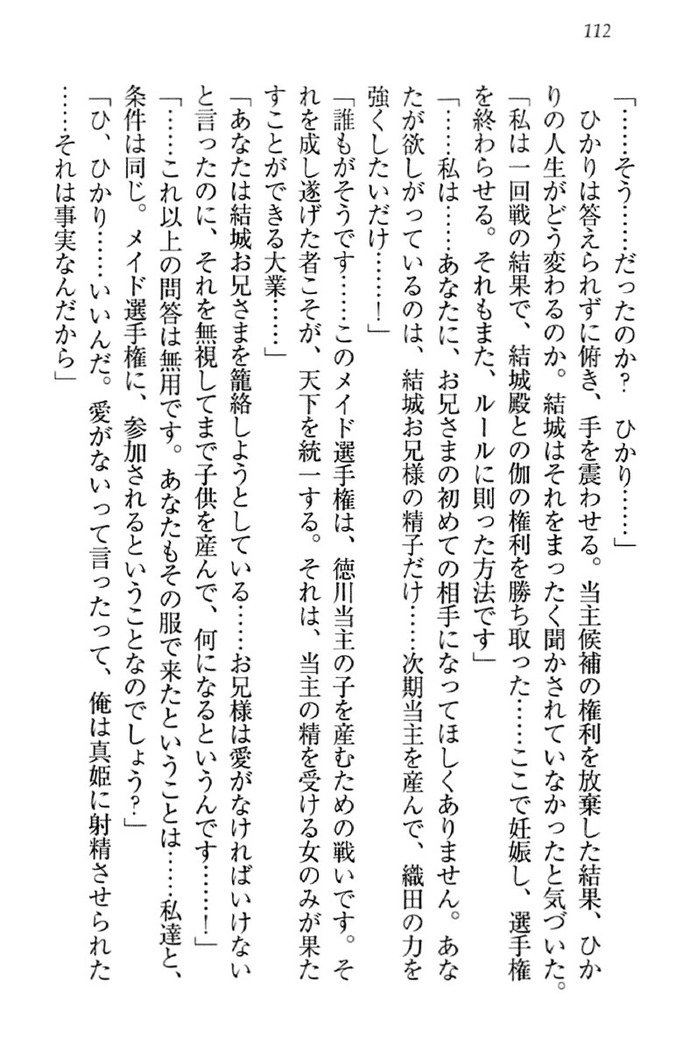 112
「……そう……だったのか？　ひかり……」
　ひかりは答えられずに俯き、手を震わせる。当主候補の権利を放棄した結果、ひか
りの人生がどう変わるのか。結城はそれをまったく聞かされていなかったと気づいた。
「私は一回戦の結果で、結城殿との伽の権利を勝ち取った……ここで妊娠し、選手権
を終わらせる。それもまた、ルールに則った方法です」
「……私は……あなたに、お兄さまの初めての相手になってほしくありません。あな
たが欲しがっているのは、結城お兄様の精子だけ……次期当主を産んで、織田の力を
強くしたいだけ……！」
「誰もがそうです……このメイド選手権は、徳川当主の子を産むための戦いです。そ
れを成し遂げた者こそが、天下を統一する。それは、当主の精を受ける女のみが果た
すことができる大業……」
「あなたは結城お兄さまを籠絡しようとしている……お兄様は愛がなければいけない
と言ったのに、それを無視してまで子供を産んで、何になるというんです……！」
「……これ以上の問答は無用です。あなたもその服で来たということは……私達と、
条件は同じ。メイド選手権に、参加されるということなのでしょう？」
「ひ、ひかり……いいんだ。愛がないって言ったって、俺は真姫に射精させられた
……それは事実なんだから」